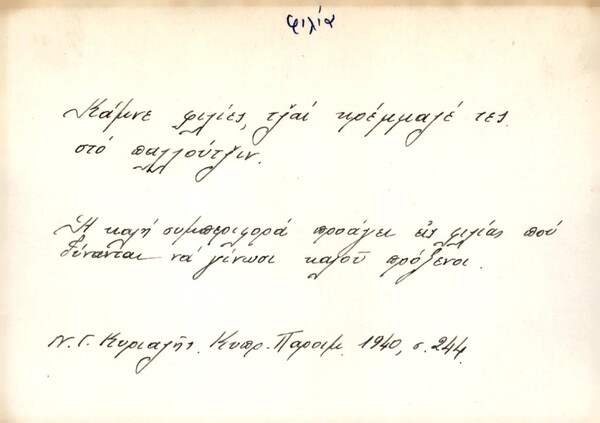 φιλία
Κάμνε φιλίες, τζ̌αί κρέμμαλέ τες
στό παλλούτζ̌ιν.
Ἡ καλή συμπεριφορά προάγει εἰς φιλίας πού
δύνανται νά γίνωσι καλοῦ πρόξενοι.
Ν. Γ. Κυριαζής. Κυπρ. Παροιμ. 1940, σ. 244.